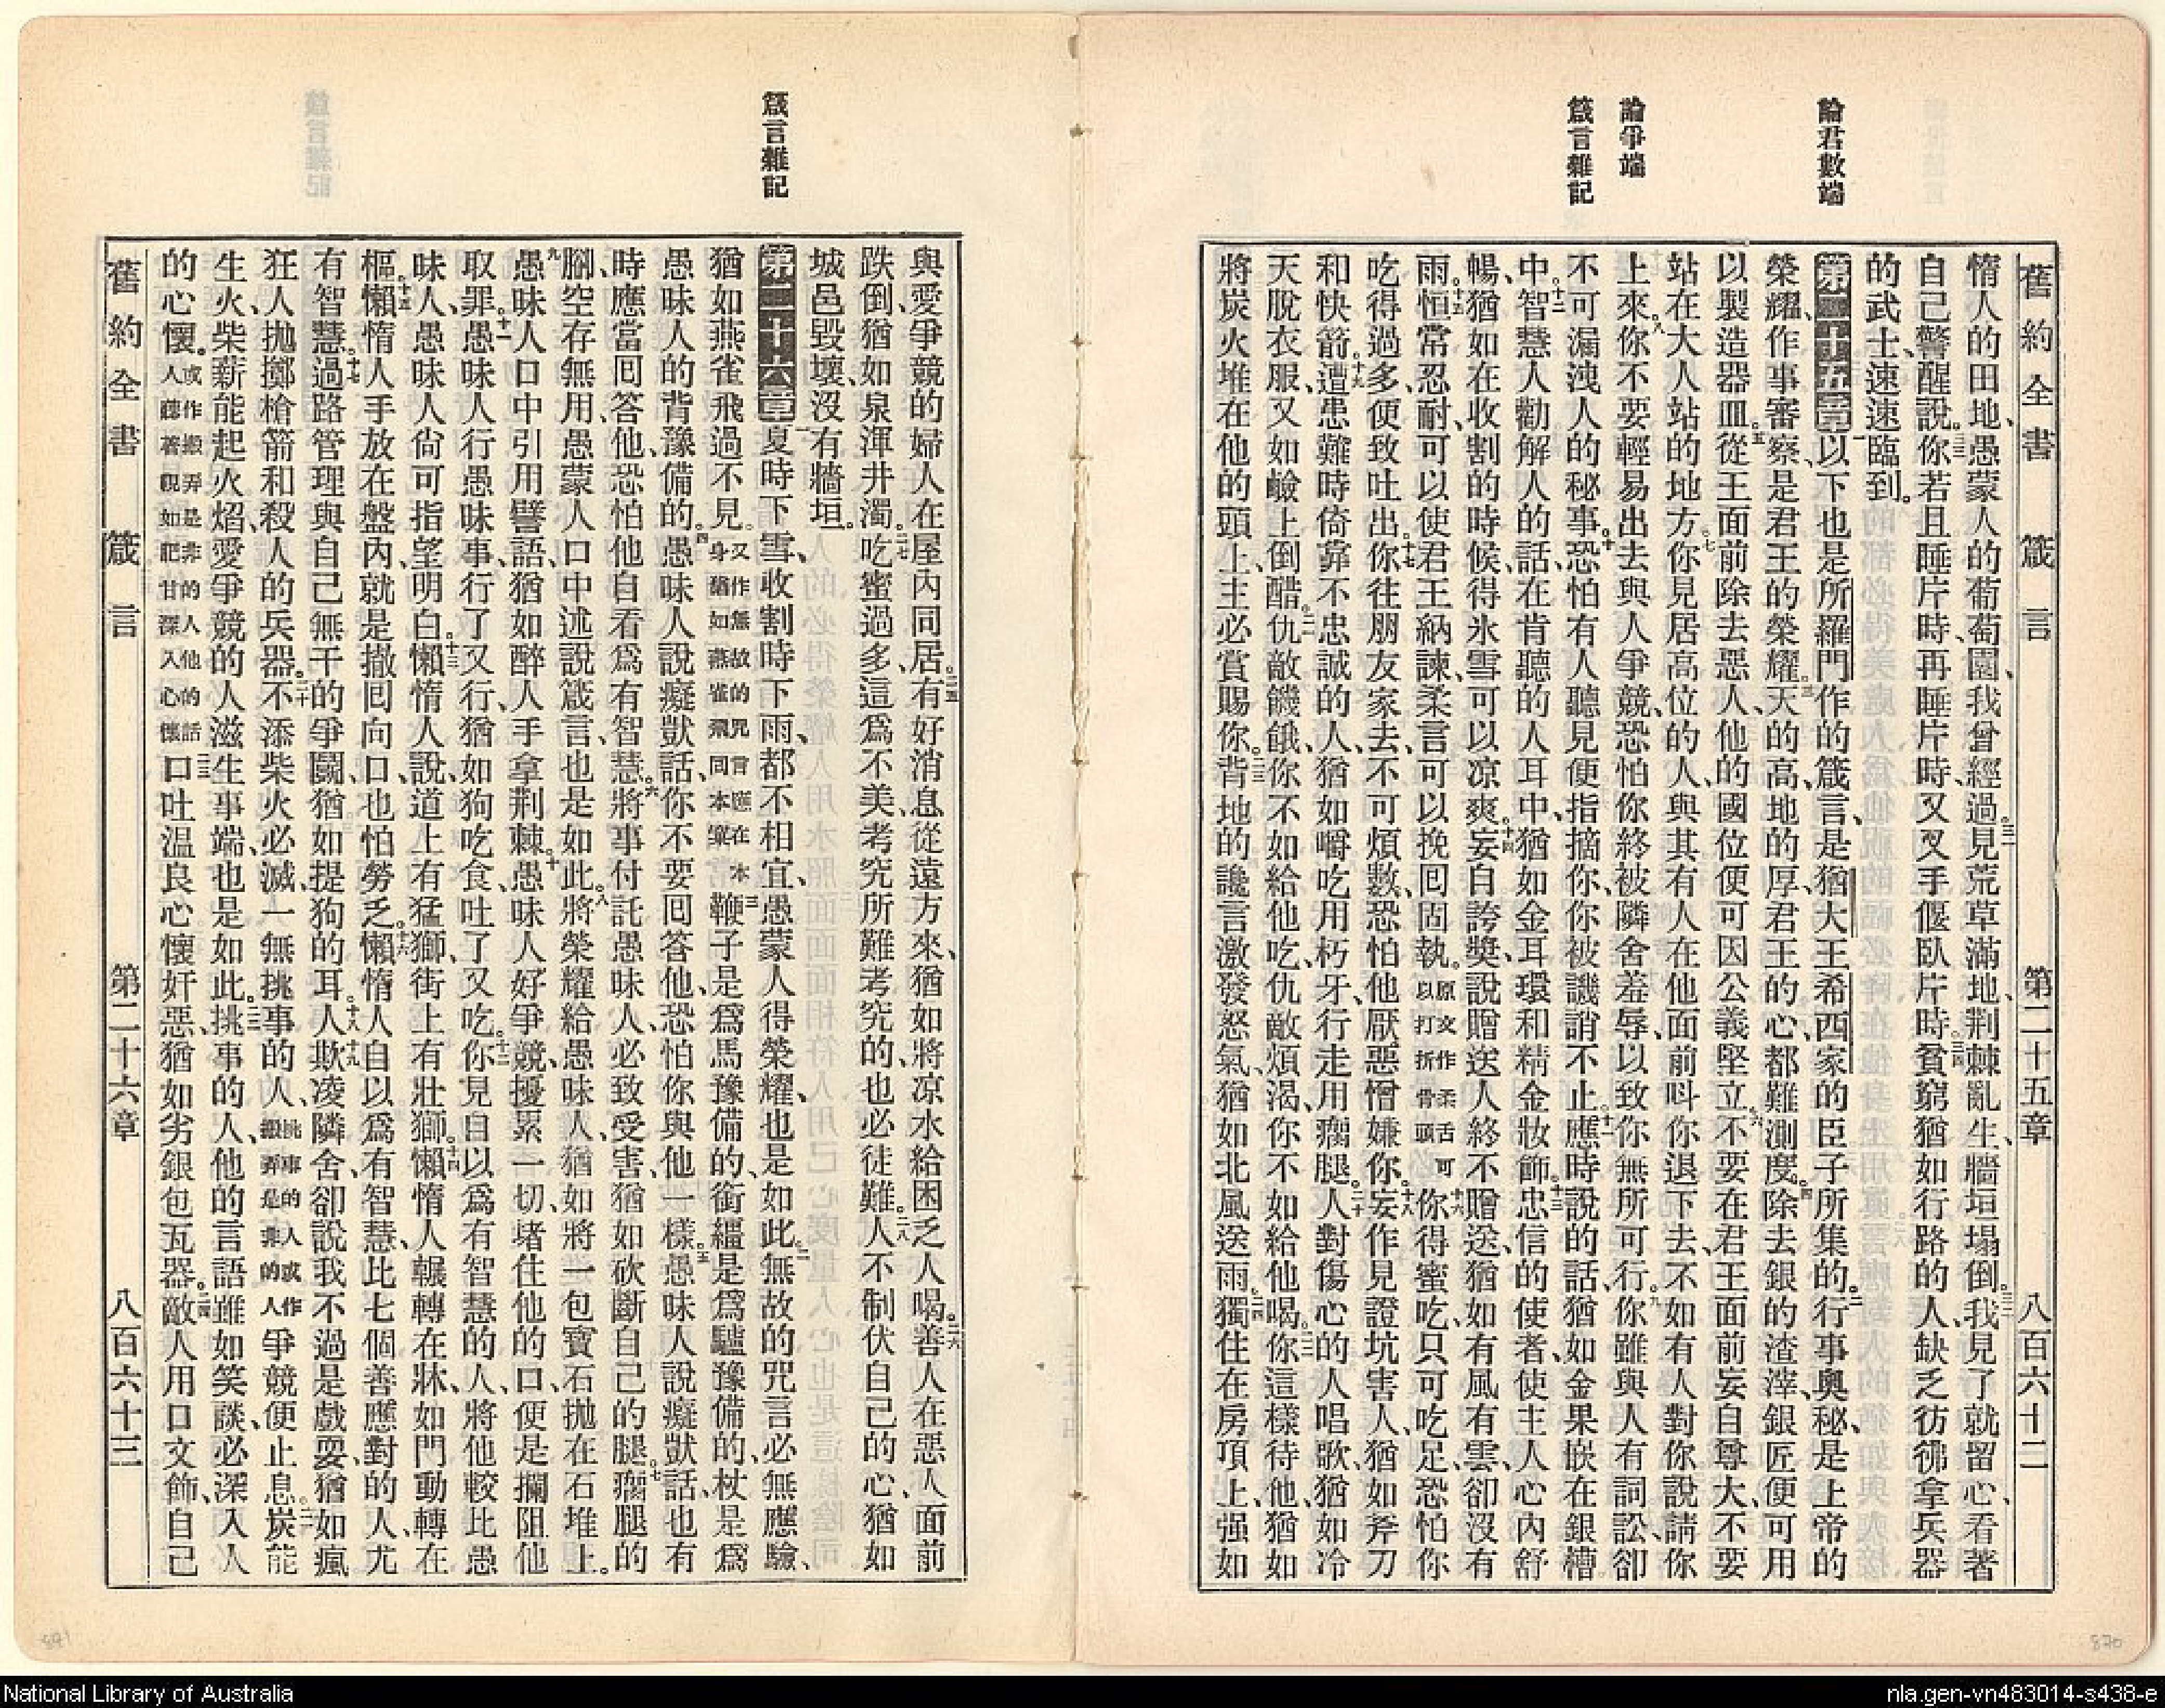 論君數端
論爭端
箴言雜記
舊約全書 箴言 第二十五章 八百六十二
惰人的田地、愚蒙人的葡萄園、我曾經過。三一見荒草滿地、荆棘亂生、牆垣塌倒。三二我見了就留心、看著
自己警醒說。三三你若且睡片時、再睡片時、又叉手偃臥片時。三四貧窮猶如行路的人、缺乏彷彿拿兵器
的武士、速速臨到。
第二十五章一以下也是所羅門作的箴言、是猶大王希西家的臣子所集的。二行事奧秘、是上帝的
榮耀、作事審察、是君王的榮耀。三天的高、地的厚、君王的心、都難測度。四除去銀的渣滓、銀匠便可用
以製造器皿。五從王面前除去惡人、他的國位便可因公義堅立。六不要在君王面前妄自尊大、不要
站在大人站的地方。七你見居高位的人、與其有人在他面前呌你退下去、不如有人對你說請你
上來。八你不要輕易出去與人爭競、恐怕你終被隣舍羞辱、以致你無所可行。九你雖與人有詞訟、卻
不可漏洩人的秘事。十恐怕有人聽見便指摘你、你被譏誚不止。十一應時說的話、猶如金果嵌在銀槽
中。十二智慧人勸解人的話、在肯聽的人耳中、猶如金耳環和精金妝飾。十三忠信的使者、使主人心內舒
暢、猶如在收割的時候、得氷雪可以凉爽。十四妄自誇獎、說贈送人終不贈送、猶如有風有雲、卻沒有
雨。十五恒常忍耐、可以使君王納諫、柔言可以挽囘固執。原文作柔舌可以打折骨頭十六你得蜜吃、只可吃足、恐怕你
吃得過多、便致吐出。十七你往朋友家去、不可煩數、恐怕他厭惡憎嫌你。十八妄作見證坑害人、猶如斧刀
和快箭。十九遭患難時倚靠不忠誠的人、猶如嚼吃用朽牙、行走用瘸腿。二十人對傷心的人唱歌、猶如冷
天脫衣服、又如鹼上倒醋。二一仇敵饑餓、你不如給他吃、仇敵煩渴、你不如給他喝。二二你這樣待他、猶如
將炭火堆在他的頭上、主必賞賜你。二三背地的讒言激發怒氣、猶如北風送雨。二四獨住在房頂上、强如
箴言雜記
與愛爭競的婦人在屋內同居。二五有好消息從遠方來、猶如將凉水給困乏人喝。二六善人在惡人面前
跌倒、猶如泉渾井濁。二七吃蜜過多、這爲不美、考究所難考究的、也必徒難。二八人不制伏自己的心、猶如
城邑毀壞、沒有牆垣。
第二十六章一夏時下雪、收割時下雨、都不相宜、愚蒙人得榮耀、也是如此。二無故的咒言必無應驗、
猶如燕雀飛過不見。又作無故的咒言應在本身猶如燕雀飛回本窠三鞭子是爲馬豫備的、銜繮是爲驢豫備的、杖是爲
愚昧人的背豫備的。四愚昧人說癡獃話、你不要囘答他、恐怕你與他一樣。五愚昧人說癡獃話、也有
時應當囘答他、恐怕他自看爲有智慧。六將事付託愚昧人、必致受害、猶如砍斷自己的腿。七瘸腿的
腳、空存無用、愚蒙人口中述說箴言、也是如此。八將榮耀給愚昧人、猶如將一包寶石拋在石堆上。
九愚昧人口中引用譬語、猶如醉人手拿荆棘。十愚昧人好爭競、擾累一切、堵住他的口、便是攔阻他
取罪。十一愚昧人行愚昧事、行了又行、猶如狗吃食、吐了又吃。十二你見自以爲有智慧的人、將他較比愚
昧人、愚昧人尙可指望明白。十三懶惰人說、道上有猛獅、街上有壯獅。十四懶惰人輾轉在牀、如門動轉在
樞。十五懶惰人手放在盤內、就是撤囘向口、也怕勞乏。十六懶惰人自以爲有智慧、比七個善應對的人、尤
有智慧。十七過路管理與自己無干的爭鬭、猶如提狗的耳。十八十九人欺凌隣舍、卻說我不過是戲耍、猶如瘋
狂人拋擲槍箭和殺人的兵器。二十不添柴火必滅、一無挑事的人、挑事的人或作搬弄是非的人爭競便止息。二一炭能
生火、柴薪能起火焰、愛爭競的人滋生事端、也是如此。二二挑事的人、他的言語雖如笑談、必深入人
的心懷。或作搬弄是非的人他的話人聽著視如肥甘深入心懷二三口吐温良心懷奸惡、猶如劣銀包瓦器。二四敵人用口文飾、自己
舊約全書 箴言 第二十六章 八百六十三
871
870
National Library of Australia
nla.gen-vn483014-s438-e